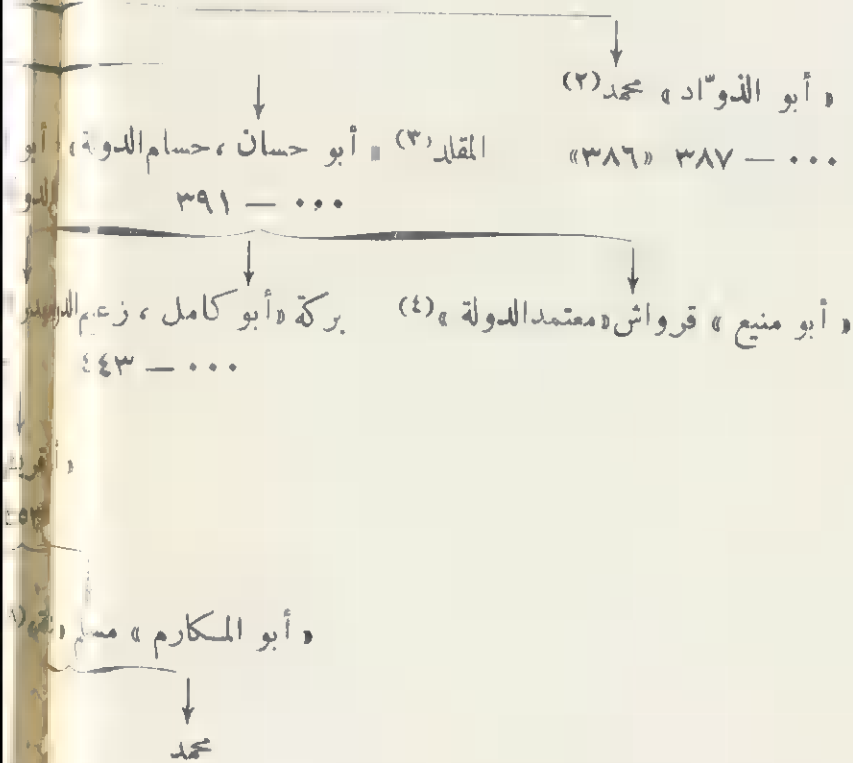 « أبو الذوّاد » محمد (٢)
المقلد (٣) « أبو حسان ، حسام الدولة » أبو
٠٠٠ — ٣٨٧ «٣٨٦»
٠٠٠ — ٣٩١
« أبو منيع » قرواش «معتمد الدولة» (٤)
بركة «أبو كامل ، زعيم
٠٠٠ — ٤٤٣
« أبو المكارم » مسلم
محمد